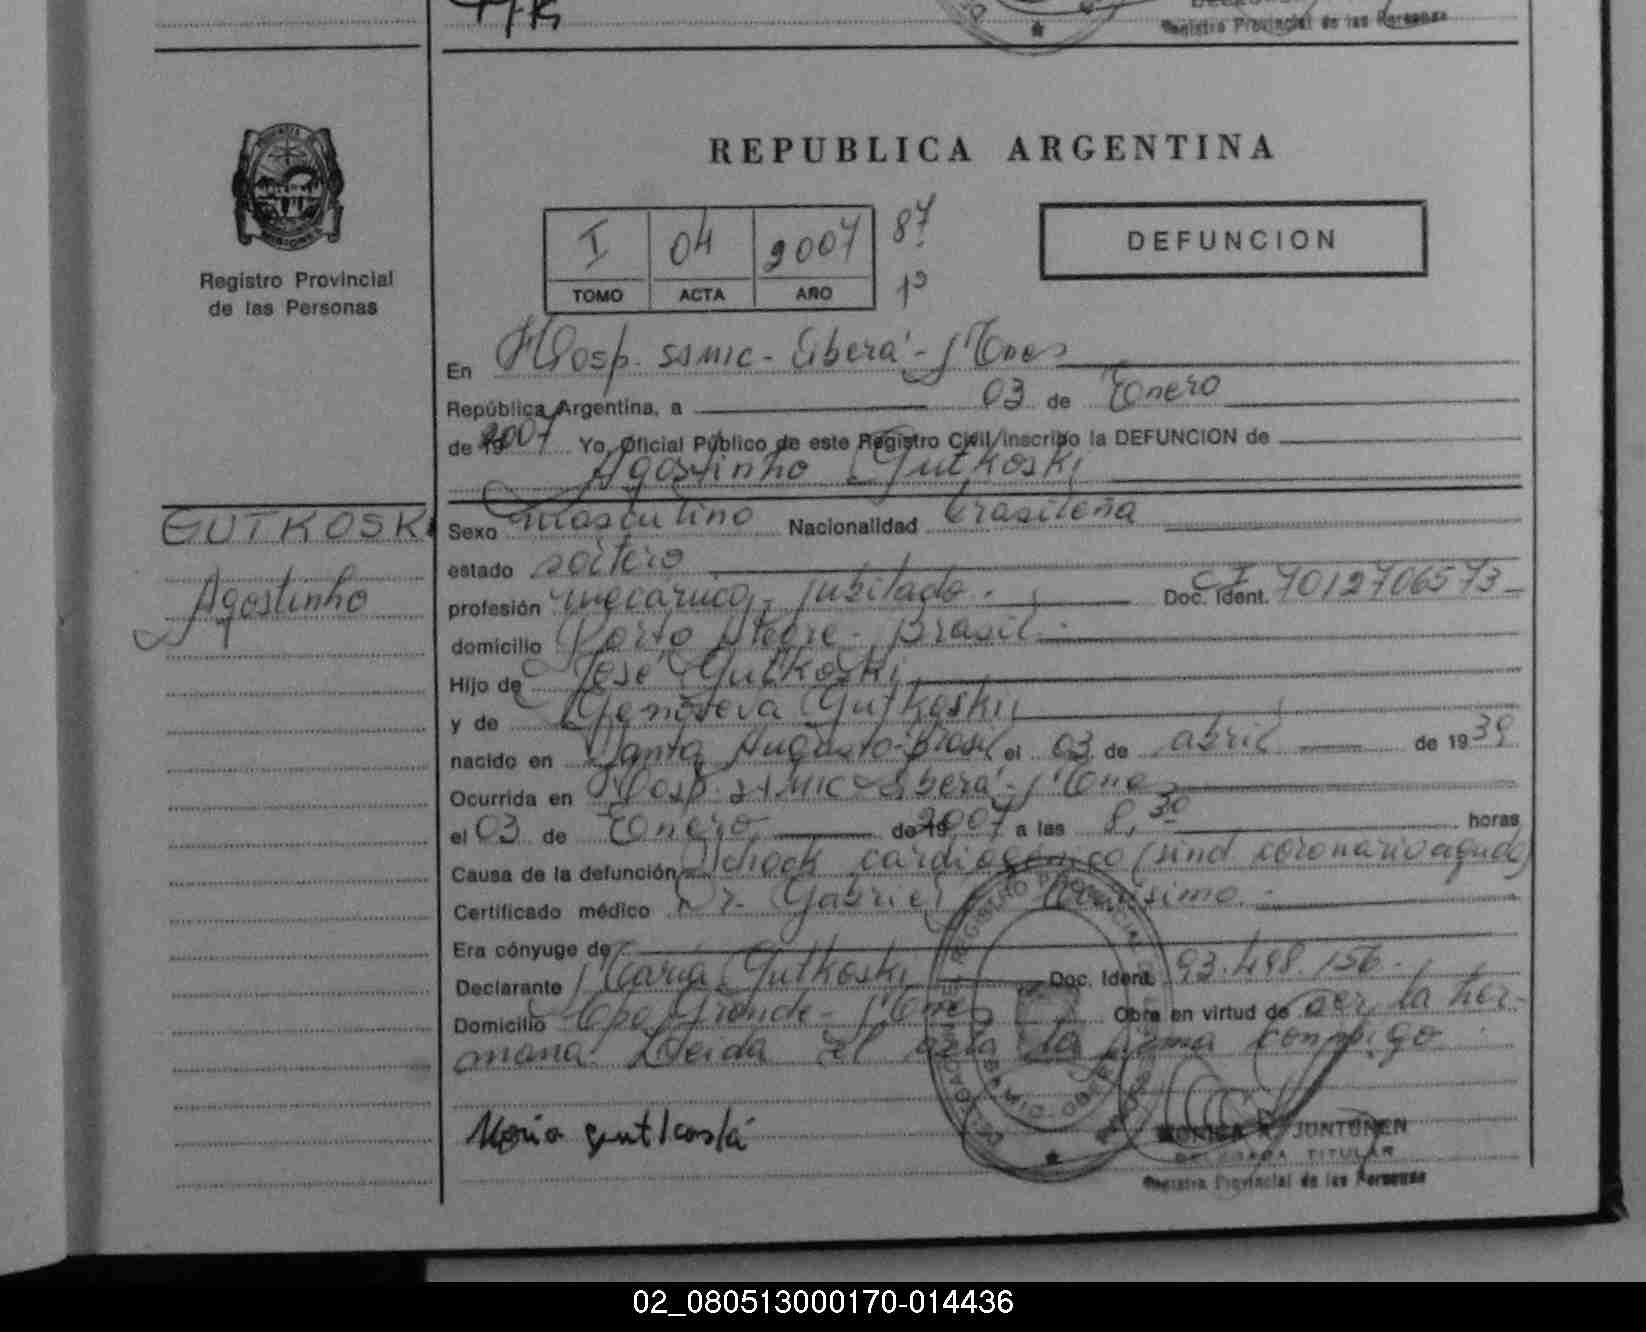 Registro Provincial de las Personas
REPUBLICA ARGENTINA
MISIONES
Registro Provincial
de las Personas
I 04 2007 87
TOMO ACTA AÑO 1º
DEFUNCION
En Hosp. SAMIC - Eldorado - Mnes
República Argentina, a 03 de Enero
de 2007 Yo, Oficial Público de este Registro Civil inscribo la DEFUNCION de
Agostinho Gutkoski
GUTKOSKI
Agostinho
Sexo masculino Nacionalidad brasileña
estado soltero
profesión mecánico, jubilado. Doc. Ident. C I 7012706573
domicilio Porto Alegre - Brasil.
Hijo de José Gutkoski
y de Genoveva Gutkoski
nacido en Santo Augusto-Brasil el 03 de abril de 1939
Ocurrida en Hosp. SAMIC - Mnes
el 03 de Enero de 2007 a las 8,30 horas
Causa de la defunción Schock cardiogénico (sind coronario agudo)
Certificado médico Dr. Gabriel
Era cónyuge de
Declarante María Gutkoski Doc. Ident. 93.498.156.
Domicilio Cpo Grande - Mnes Obra en virtud de ser la her-
mana. Leida el acta la firma conmigo
Maria gutkoski
MONICA R. JUNTUNEN
DELEGADA TITULAR
Registro Provincial de las Personas
02_080513000170-014436